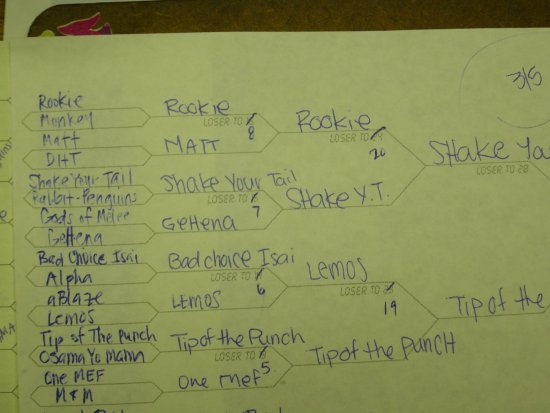 3/5
Rookie
Monkey
Matt
DHT
Shake Your Tail
Rabbit-Penguins
Gods of Melee
GeHena
Bad Choice Isai
Alpha
aBlaze
Lemos
Tip of The Punch
Osama Yo Mama
One MEF
M&M
Rookie
LOSER TO
8
MATT
Shake Your Tail
LOSER TO
7
GeHena
Bad choice Isai
LOSER TO
6
LEMOS
Tip of the Punch
LOSER TO
5
One Mef
Rookie
LOSER TO
20
SHake Y.T.
LEMOS
LOSER TO
19
Tip of the PUNCH
SHake You
LOSER TO 28
Tip of the